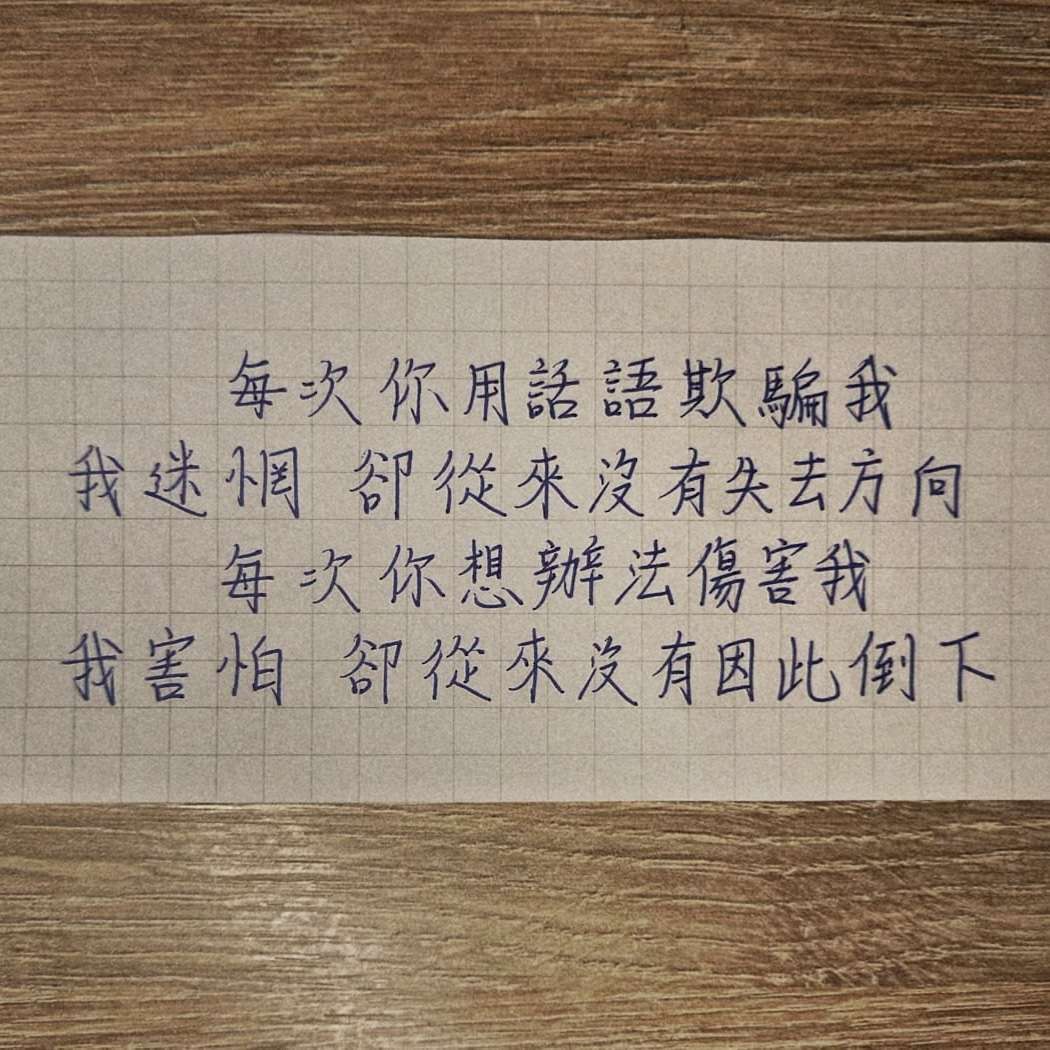 每次你用話語欺騙我
我迷惘 卻從來沒有失去方向
每次你想辦法傷害我
我害怕 卻從來沒有因此倒下